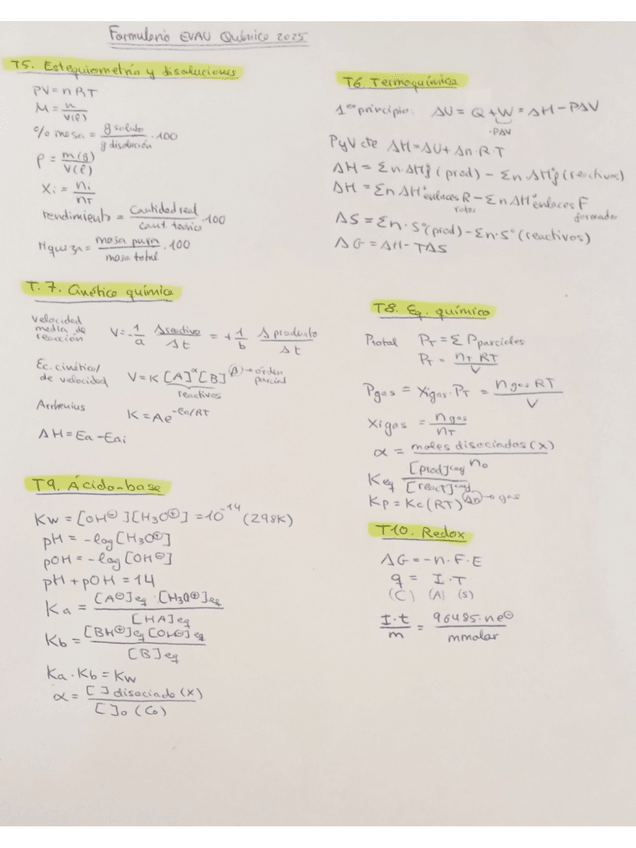 Formulario EVAU Química 2025
T5. Estequiometría y disoluciones
PV = nRT
M = n / V(l)
% masa = g soluto / g disolución · 100
ρ = m(g) / V(l)
Xi = ni / nT
rendimiento = Cantidad real / cant teórico · 100
riqueza = masa pura / masa total · 100
T6. Termoquímica
1er principio: ΔU = Q + W = ΔH - PΔV
-PΔV
P y V cte ΔH = ΔU + Δn·R·T
ΔH = Σn·ΔHºf (prod) - Σn·ΔHºf (reactivos)
ΔH = Σn ΔHº enlaces R - Σn ΔHº enlaces F
rotos formados
ΔS = Σn·Sº (prod) - Σn·Sº (reactivos)
ΔG = ΔH - TΔS
T.7. Cinética química
Velocidad media de reacción V = -1/a Δreactivo/Δt = +1/b Δproducto/Δt
Ec. cinética/ de velocidad V = K [A]^α [B]^β → orden parcial
reactivos
Arrhenius K = Ae^-Ea/RT
ΔH = Ea - Eai
T8. Eq. química
Ptotal PT = Σ Pparciales
PT = nT RT / V
Pgas = Xigas · PT = ngas RT / V
Xigas = ngas / nT
α = moles disociados (x) / n0
Keq [prod]eq / [react]eq
Kp = Kc (RT)^Δn → gas
T9. Ácido-base
Kw = [OH⊖][H3O⊕] = 10^-14 (298K)
pH = -log[H3O⊕]
pOH = -log[OH⊖]
pH + pOH = 14
Ka = [A⊖]eq · [H3O⊕]eq / [HA]eq
Kb = [BH⊕]eq [OH⊖]eq / [B]eq
Ka · Kb = Kw
α = [ ] disociado (x) / [ ]0 (C0)
T10. Redox
ΔG = -n·F·E
q = I·T
(C) (A) (s)
I·t / m = 96485·ne⊖ / mmolar